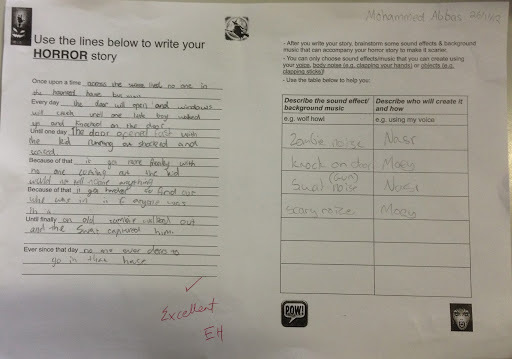 Use the lines below to write your
HORROR story
Once upon a time across the were lived no one in
the haunted house
Every day the door will open and windows
will until one late boy walked
up and knocked on the door
Until one day The door opened fast with
the kid running out shocked and
scared
Because of that it got more freaky with
no one coming out the kid
would no tell anyone anything
Because of that it got harder to find out
who was in it if anyone was
in it
Until finally an old zombie walked out
and the Swat captured him
Ever since that day no one ever dares to
go in that house
Excellent
EH
Mohammed Abbas
- After you write your story, brainstorm some sound effects & background
music that can accompany your horror story to make it scarier.
- You can only choose sound effects/music that you can create using
your voice, body noise (e.g. clapping your hands) or objects (e.g.
clapping sticks)!
- Use the table below to help you:
Describe the sound effect/ background music Describe who will create it and how
e.g. wolf howl e.g. using my voice
Zombie noise Nasr
knock on door Moey
Swat (Gun) noise Nasr
scary voice Moey
POW!